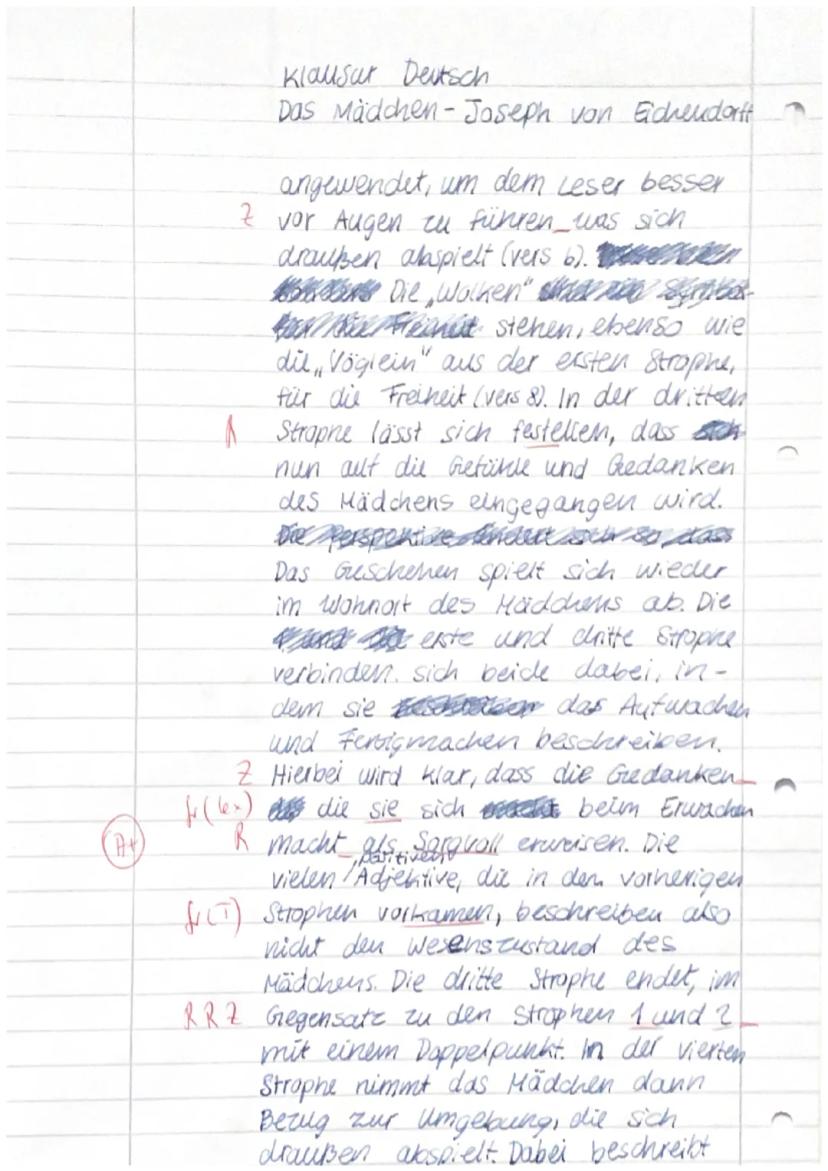 Klausur Deutsch
Das Mädchen - Joseph von Eichendorff
angewendet, um dem Leser besser
Z vor Augen zu führen_was sich
draußen abspielt (vers 6).
Die „Wolken"
stehen, ebenso wie
die „Vöglein" aus der ersten Strophe,
für die Freiheit (vers 8). In der dritten
R Strophe lässt sich festellem, dass
nun auf die Gefühle und Gedanken
des Mädchens eingegangen wird.
Die Perspektive ändert sich so, dass
Das Geschehen spielt sich wieder
im Wohnort des Mädchens ab. Die
erste und dritte Strophe
verbinden sich beide dabei, in-
dem sie das Aufwachen
und Fertigmachen beschreiben.
Z Hierbei wird klar, dass die Gedanken_
die sie sich beim Erwachen
A+ R macht_als Sorgvoll erweisen. Die
vielen positiven Adjektive, die in den vorherigen
gr(T) Strophen vorkamen, beschreiben also
nicht den Wesenszustand des
Mädchens. Die dritte Strophe endet, im
R R Z Gegensatz zu den Strophen 1 und 2_
mit einem Doppelpunkt. In der vierten
Strophe nimmt das Mädchen dann
Bezug zur Umgebung, die sich
draußen abspielt. Dabei beschreibt